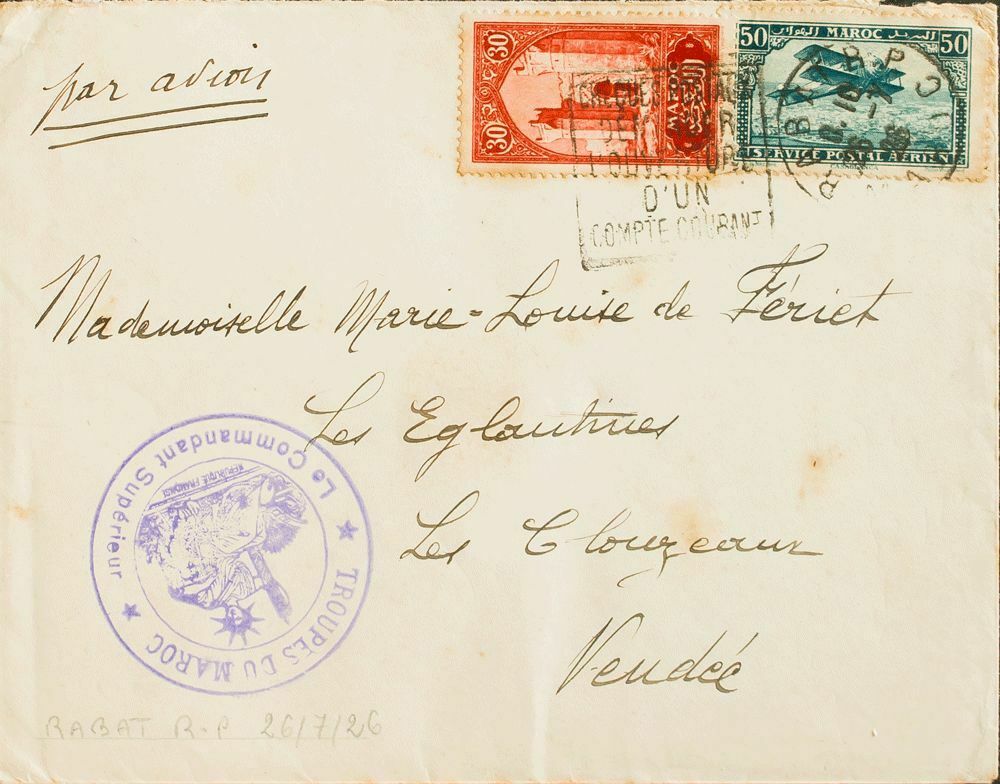 par avion
30 30
MAROC
50 MAROC 50
SERVICE POSTAL AÉRIEN
CHEQUES POSTAUX
L'OUVERTURE
D'UN
COMPTE COURANT
RABAT R.P
26
Mademoiselle Marie-Louise de Fériet
Les Eglantines
Les Clouzeaux
Vendée
TROUPES DU MAROC
Le Commandant Supérieur
RÉPUBLIQUE FRANÇAISE
RABAT R.P 26/7/26